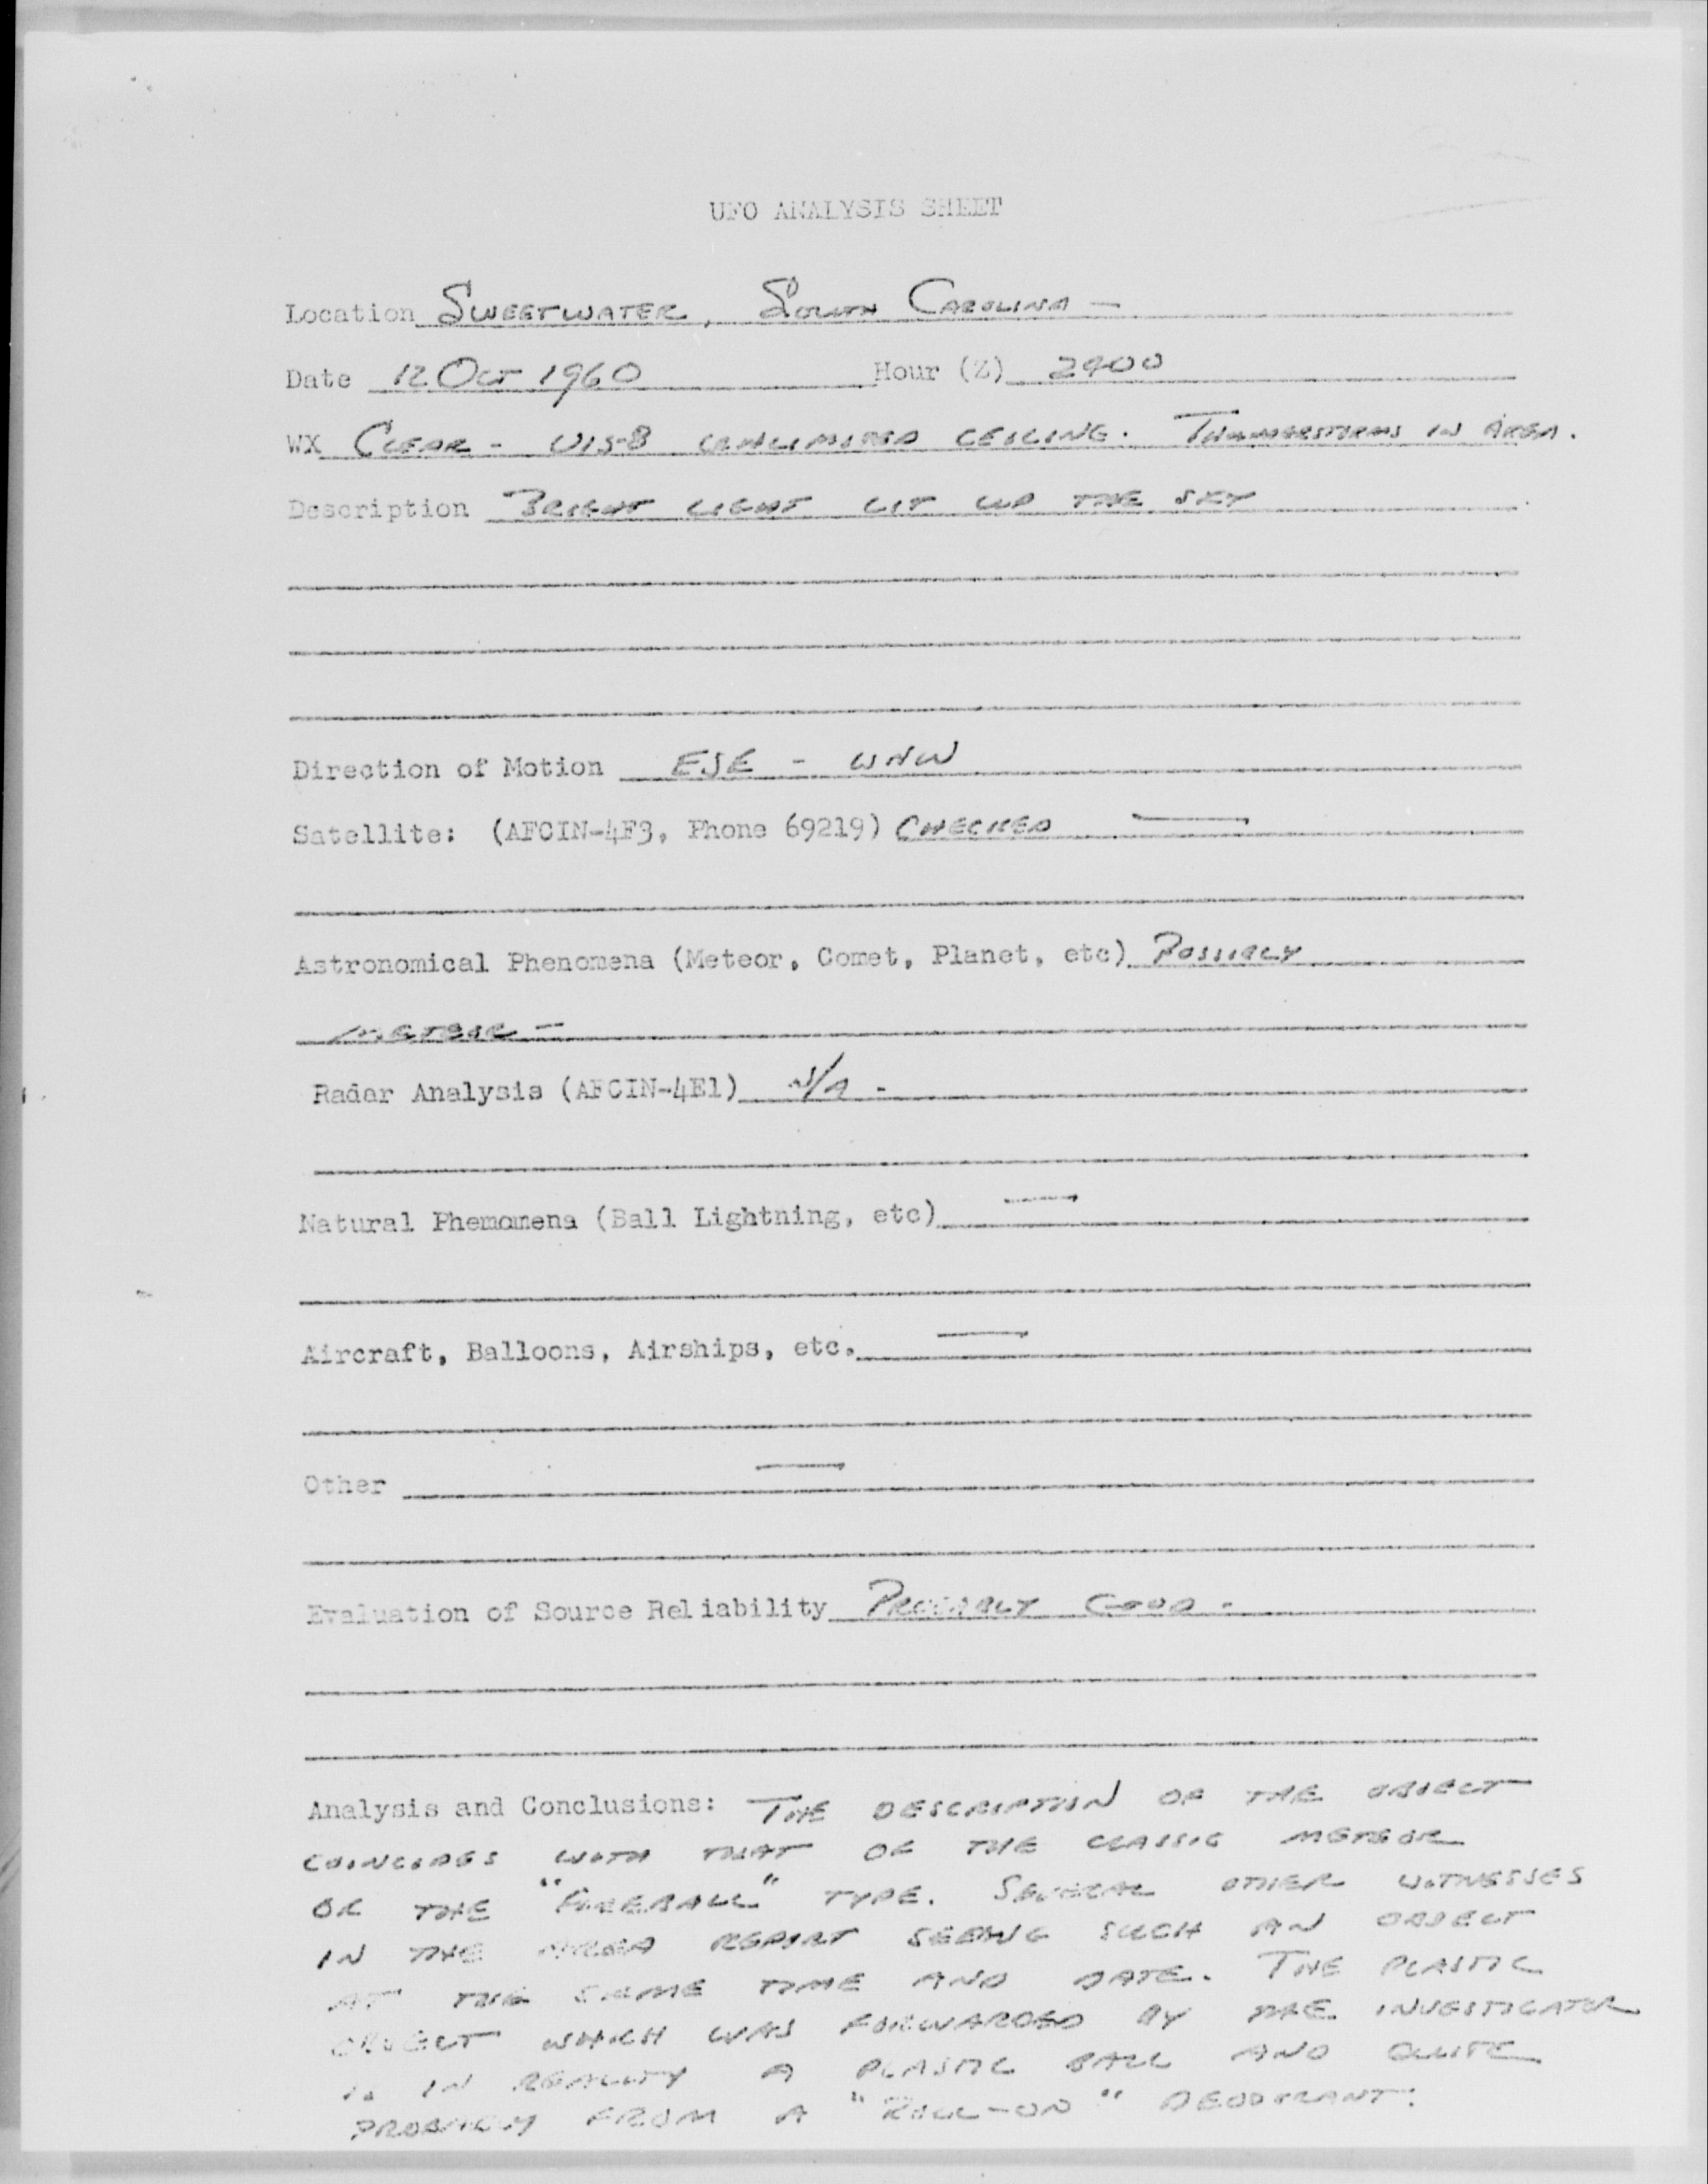 UFO ANALYSIS SHEET
Location SWEETWATER, SOUTH CAROLINA —
Date 12 OCT 1960 Hour (Z) 2400
WX CLEAR - VIS-8 UNLIMITED CEILING. THUNDERSTORMS IN AREA.
Description BRIGHT LIGHT LIT UP THE SKY
Direction of Motion ESE - WNW
Satellite: (AFCIN-4F3, Phone 69219) CHECKED —
Astronomical Phenomena (Meteor, Comet, Planet, etc) POSSIBLY
METEOR —
Radar Analysis (AFCIN-4E1) N/A -
Natural Phemomena (Ball Lightning, etc) —
Aircraft, Balloons, Airships, etc. —
Other —
Evaluation of Source Reliability PROBABLY GOOD -
Analysis and Conclusions: THE DESCRIPTION OF THE OBJECT
COINCIDES WITH THAT OF THE CLASSIC METEOR
OR THE "FIREBALL" TYPE. SEVERAL OTHER WITNESSES
IN THE AREA REPORT SEEING SUCH AN OBJECT
AT THE SAME TIME AND DATE. THE PLASTIC
OBJECT WHICH WAS FORWARDED BY THE INVESTIGATOR
IS IN REALITY A PLASTIC BALL AND QUITE
PROBABLY FROM A "ROLL-ON" DEODORANT.